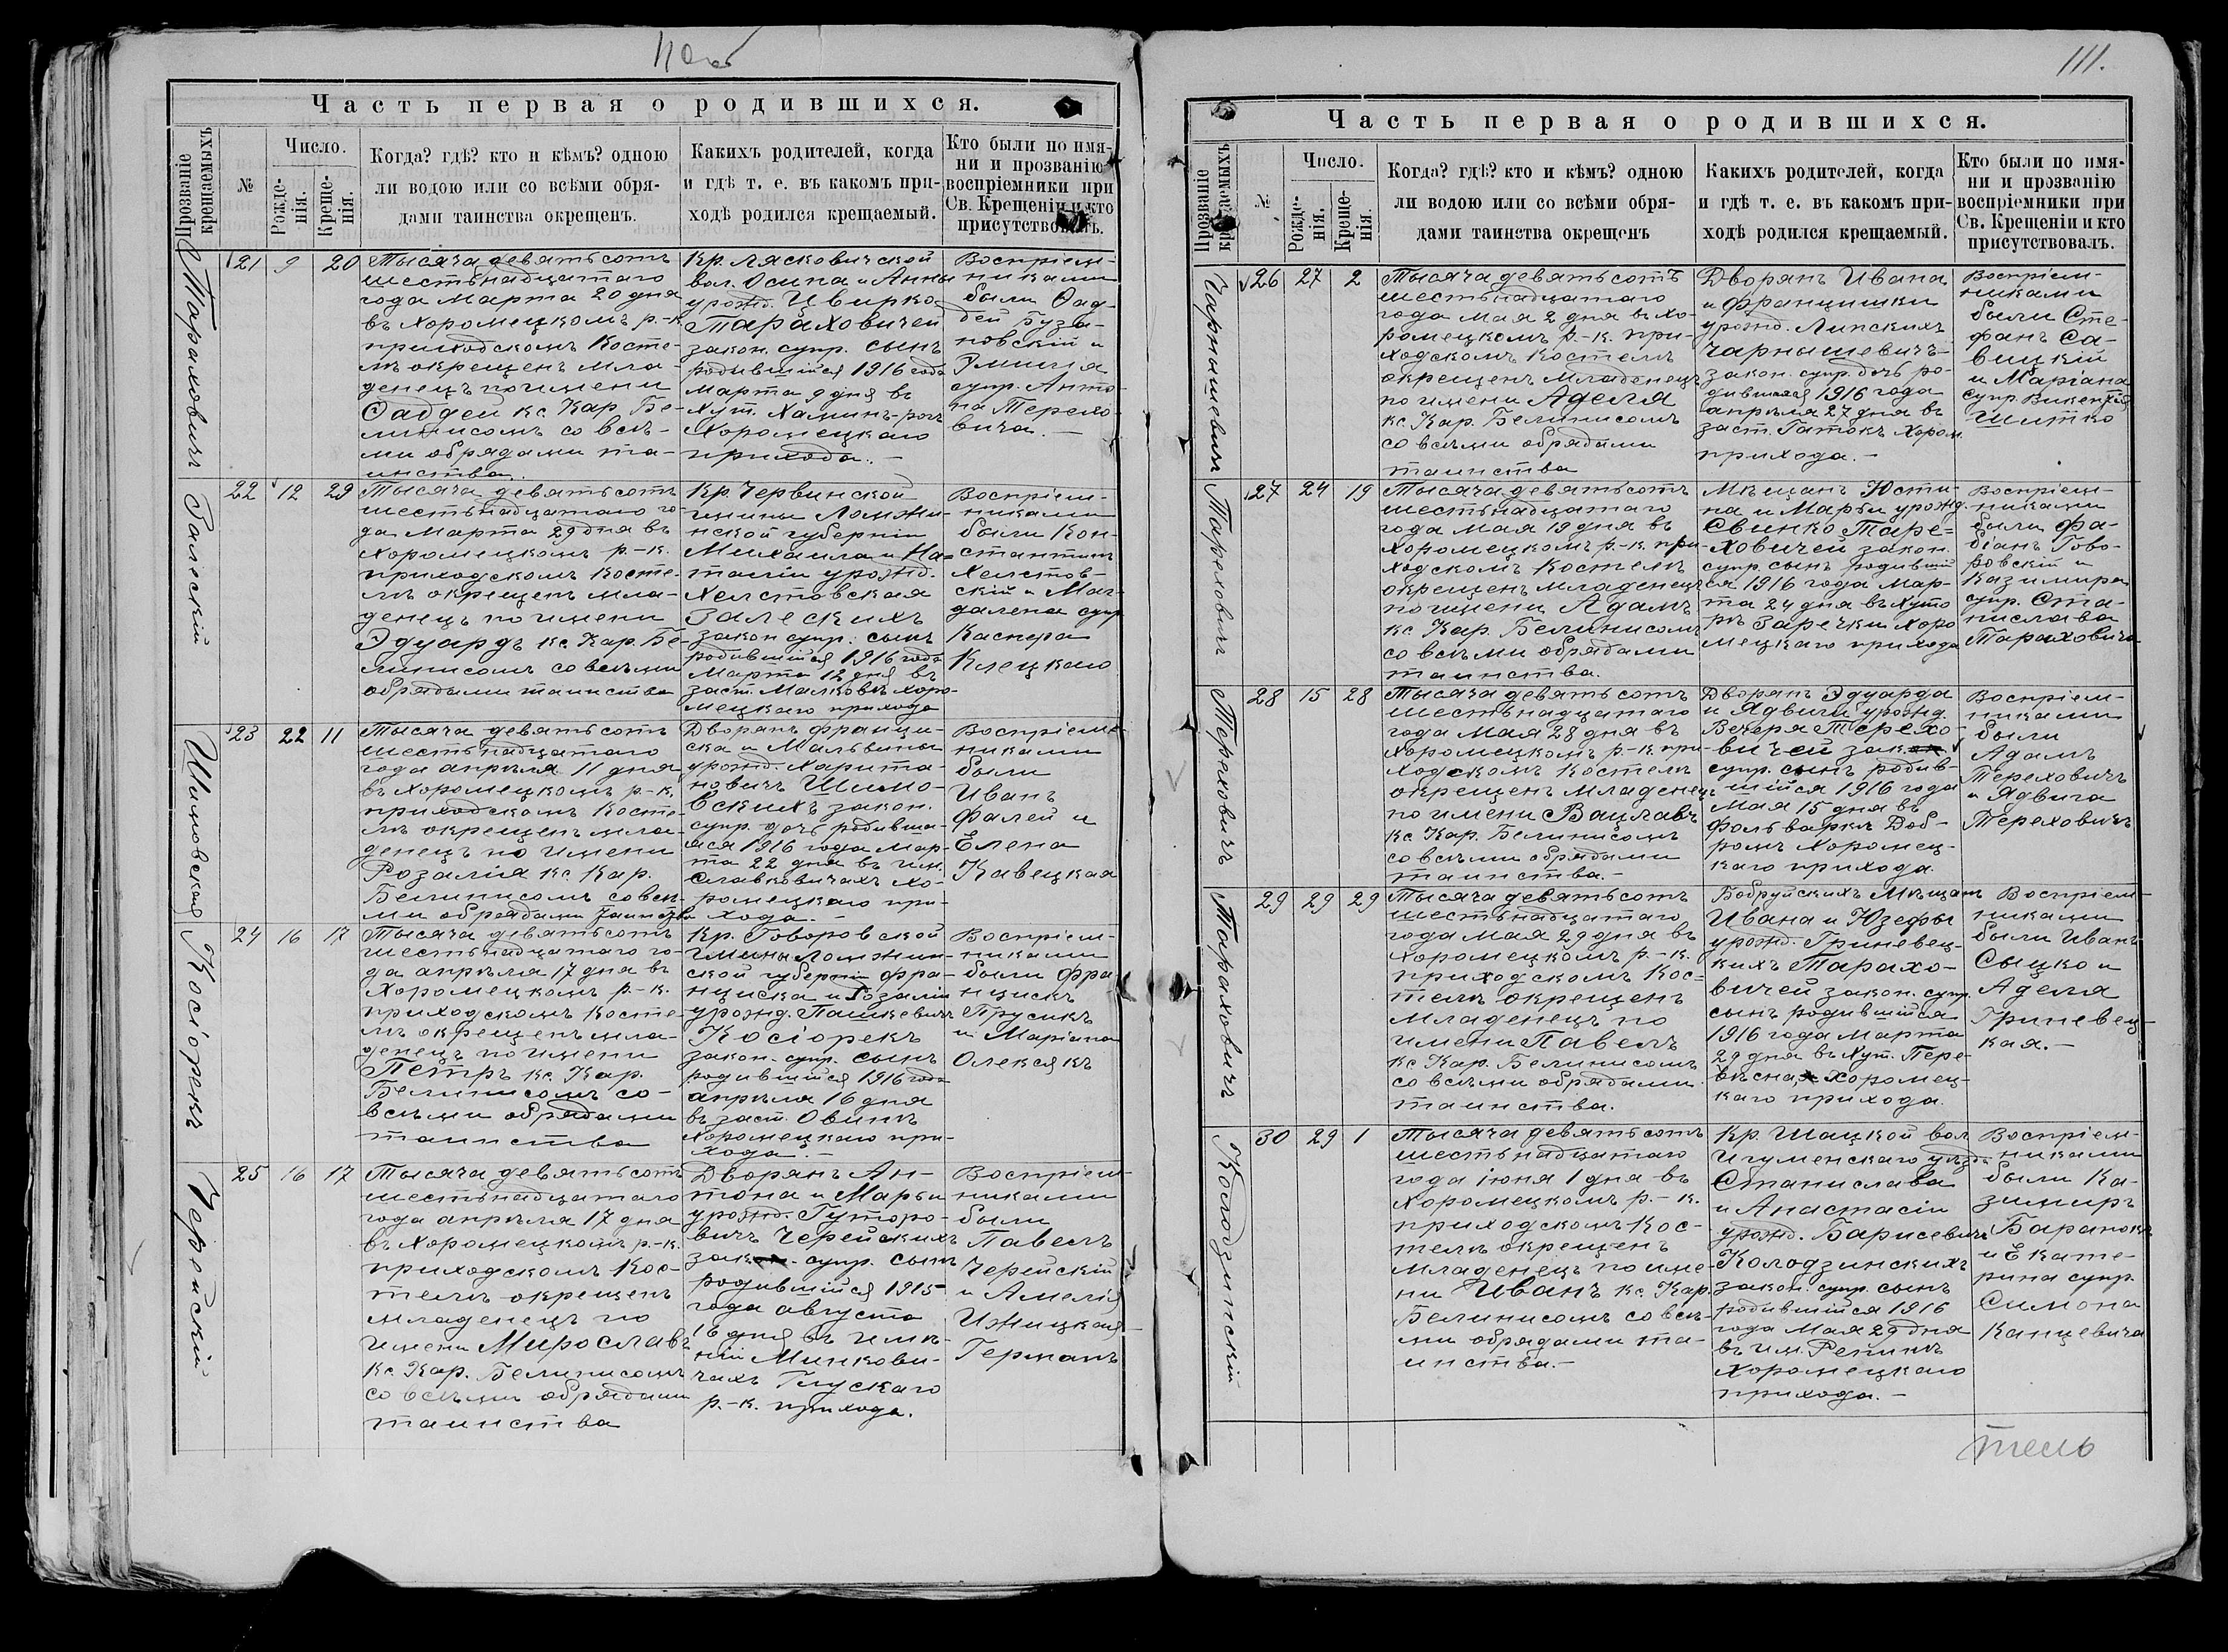 110об
Часть первая о родившихся.
Прозваніе крещаемыхъ
№
Число.
Рожде-
нія.
Креще-
нія.
Когда? гдѣ? кто и кѣмъ? одною
ли водою или со всѣми обря-
дами таинства окрещенъ.
Какихъ родителей, когда
и гдѣ т. е. въ какомъ при-
ходѣ родился крещаемый.
Кто были по имя-
ни и прозванію
воспріемники при
Св. Крещеніи и кто
присутствовалъ.
Тараховичъ
21 9 20
Тысяча девятьсотъ
шестьнадцатаго
года Марта 20 дня
въ Хоромецкомъ р.-к.
приходскомъ Косте-
лѣ окрещенъ мла-
денецъ по имени
Фаддей кс. Кар. Бе-
линисомъ со всѣ-
ми обрядами та-
инства.
Кр. Лясковичской
вол. Осипа и Анны
урожд. Цвирко
Тараховичей
закон. супр. сынъ
родившійся 1916 года
Марта 9 дня въ
хут. Халинъ-рогъ
Хоромецкаго
прихода. –
Воспріем-
никами
были Фад-
дей Буза-
новскій и
Эмилія
супр. Анто-
на Терехо-
вича. –
Залескій
22 12 29
Тысяча девятьсотъ
шестьнадцатаго го-
да Марта 29 дня въ
Хоромецкомъ р.-к.
приходскомъ Косте-
лѣ окрещенъ мла-
денецъ по имени
Эдуардъ кс. Кар. Бе-
линисомъ со всѣми
обрядами таинства
Кр. Червинской
гмины Ломжи-
нской губерніи
Михаила и На-
таліи урожд.
Хелстовская
Залескихъ
закон супр. сынъ
родившійся 1916 года
Марта 12 дня въ
заст. Малковѣ хоро-
мецкаго прихода
Воспріем-
никами
были Кон-
стантинъ
Хелстов-
скій и Маг-
далена супр
Каспера
Клецкаго
Шимовская
23 22 11
Тысяча девятьсотъ
шестьнадцатаго
года апрѣля 11 дня
въ Хоромецкомъ р.-к.
приходскомъ Косте-
лѣ окрещенъ мла-
денецъ по имени
Розалія кс. Кар.
Белинисомъ со всѣ-
ми обрядами таинства
Дворянъ Франци-
ска и Мальвины
урожд. Харита-
новичъ Шимо-
вскихъ закон.
супр. дочь родивша-
яся 1916 года Мар-
та 22 дня въ им.
Славковичахъ Хо-
ромецкаго при-
хода. –
Воспріем-
никами
были
Иванъ
Фалей и
Елена
Кавецкая
Косіорекъ
24 16 17
Тысяча девятьсотъ
шестьнадцатаго го-
да апрѣля 17 дня въ
Хоромецкомъ р.-к.
приходскомъ Косте-
лѣ окрещенъ мла-
денецъ по имени
Петръ кс. Кар.
Белинисомъ со-
всѣми обрядами
таинства
Кр. Говоровской
гмины Ломжин-
ской губерніи Фра-
нциска и Розаліи
урожд. Пашкевичъ
Косіорекъ
закон. супр. сынъ
родившійся 1916 года
апрѣля 16 дня
въ заст. Овинѣ
Хоромецкаго при-
хода. –
Воспріем-
никами
были Фра
нцискъ
Прусикъ
и Маріана
Олексякъ
Черейскій
25 16 17
Тысяча девятьсотъ
шестьнадцатаго
года апрѣля 17 дня
въ Хоромецкомъ р.-к.
приходскомъ Кос-
телѣ окрещенъ
младенецъ по
имени Мирославъ
Кс. Кар. Белинисомъ
со всѣми обрядами
таинства
Дворянъ Ан-
тона и Марьи
урожд. Гуторо-
вичъ Черейскихъ
закон. супр. сынъ
родившійся 1915
года августа
16 дня въ имѣ-
ніи Минкови-
чахъ Глускаго
р.-к. прихода.
Воспріем-
никами
были
Павелъ
Черейскій
и Амелія
Ижицкая-
Германъ
111.
Часть первая о родившихся.
Прозваніе крещаемыхъ
№
Число.
Рожде-
нія.
Креще-
нія.
Когда? гдѣ? кто и кѣмъ? одною
ли водою или со всѣми обря-
дами таинства окрещенъ
Какихъ родителей, когда
и гдѣ т. е. въ какомъ при-
ходѣ родился крещаемый.
Кто были по имя-
ни и прозванію
воспріемники при
Св. Крещеніи и кто
присутствовалъ.
Чарнышевичъ
26 27 2
Тысяча девятьсотъ
шестьнадцатаго
года мая 2 дня въ хо-
ромецкомъ р.-к. при-
ходскомъ костелѣ
окрещенъ младенецъ
по имени Аделя
кс. Кар. Белинисомъ
со всѣми обрядами
таинства
Дворянъ Ивана
и Францишки
урожд. Липскихъ
Чарнышевичъ-
закон. супр. дочь ро-
дившаяся 1916 года
апрѣля 27 дня въ
заст. Гатокъ Хором.
прихода. –
Воспріем-
никами
были Сте-
фанъ Са-
вицкій
и Маріана
супр. Викентія
Шитко
Тареховичъ
27 24 19
Тысяча девятьсотъ
шестьнадцатаго
года мая 19 дня въ
Хоромецкомъ р.-к. при
ходскомъ Костелѣ
окрещенъ младенецъ
по имени Адамъ
кс. Кар. Белинисомъ
со всѣми обрядами
таинства.
Мѣщанъ Юсти-
на и Марьи урожд.
Свинко Таре-
ховичей закон.
супр. сынъ родивші
ся 1916 года Мар-
та 24 дня въ хуто
рѣ Заречки Хоро
мецкаго прихода
Воспріем-
никами
были Фа-
біанъ Гово-
ровскій и
Казимира
супр. Ста-
нислава
Тараховича
Тереховичъ
28 15 28
Тысяча девятьсотъ
шестьнадцатаго
года Мая 28 дня въ
Хоромецкомъ р.-к. при-
ходскомъ Костелѣ
окрещенъ младенецъ
по имени Вацлавъ
Кс. Кар. Белинисомъ
со всѣми обрядами
таинства. –
Дворянъ Эдуарда
и Ядвиги урожд.
Вечеря Терехо-
вичей закон.
супр. сынъ родив-
шійся 1916 года
Мая 15 дня въ
фольваркѣ Доб-
ромъ Хоромец-
каго прихода.
Воспріем-
никами
были
Адамъ
Тереховичъ
и Ядвига
Тереховичъ
Тараховичъ
29 29 29
Тысяча девятьсотъ
шестьнадцатаго
года Мая 29 дня въ
Хоромецкомъ р.-к.
приходскомъ Кос-
телѣ окрещенъ
младенецъ по
имени Павелъ
кс. Кар. Белинисомъ
со всѣми обрядами
таинства.
Бобруйскихъ Мѣщанъ
Ивана и Юзефы
урожд. Гриневец-
кихъ Тарахо-
вичей закон. супр.
сынъ родившійся
1916 года Марта
29 дня въ хут. Пере-
Хоромец-
каго прихода.
Воспріем-
никами
были Иванъ
Сыцко и
Аделя
Гриневец-
кая. –
Колодзинскій
30 29 1
Тысяча девятьсотъ
шестьнадцатаго
года іюня 1 дня въ
Хоромецкомъ р.-к.
приходскомъ Кос-
телѣ окрещенъ
младенецъ по име-
ни Иванъ кс. Кар.
Белинисомъ со всѣ-
ми обрядами та-
инства. –
Кр. Шацкой вол
Игуменскаго уѣзда
Станислава
и Анастасіи
урожд. Барисевичъ
Колодзинскихъ
закон. супр. сынъ
родившійся 1916
года Мая 29 дня
въ им. Репинѣ
Хоромецкаго
прихода. –
Воспріем-
никами
были Ка-
зимиръ
Баранокъ
и Екате-
рина супр.
Симона
Канцевича
тель